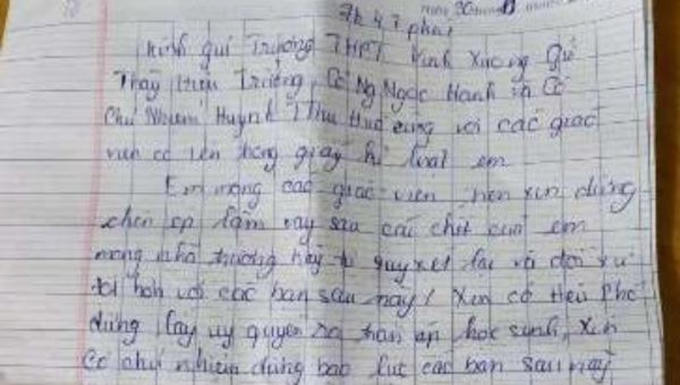 7h 47 phút
Kính gửi Trường THPT Vĩnh Xương Gửi
Thầy Hiệu Trưởng, Cô Ng Ngọc Hạnh và Cô
Chủ Nhiệm Huỳnh Thu cùng với các giáo
viên có tên trong giấy kỉ luật em
Em mong các giáo viên nên xin đừng
chèn ép lắm vậy sau cái chết của em
mong nhà trường hãy quyết lại và đối xử
tốt hơn với các bạn sau này! Xin cô Hiệu Phó
đừng lấy uy quyền ra đàn áp học sinh, xin
cô chủ nhiệm đừng bạo lực các bạn sau này